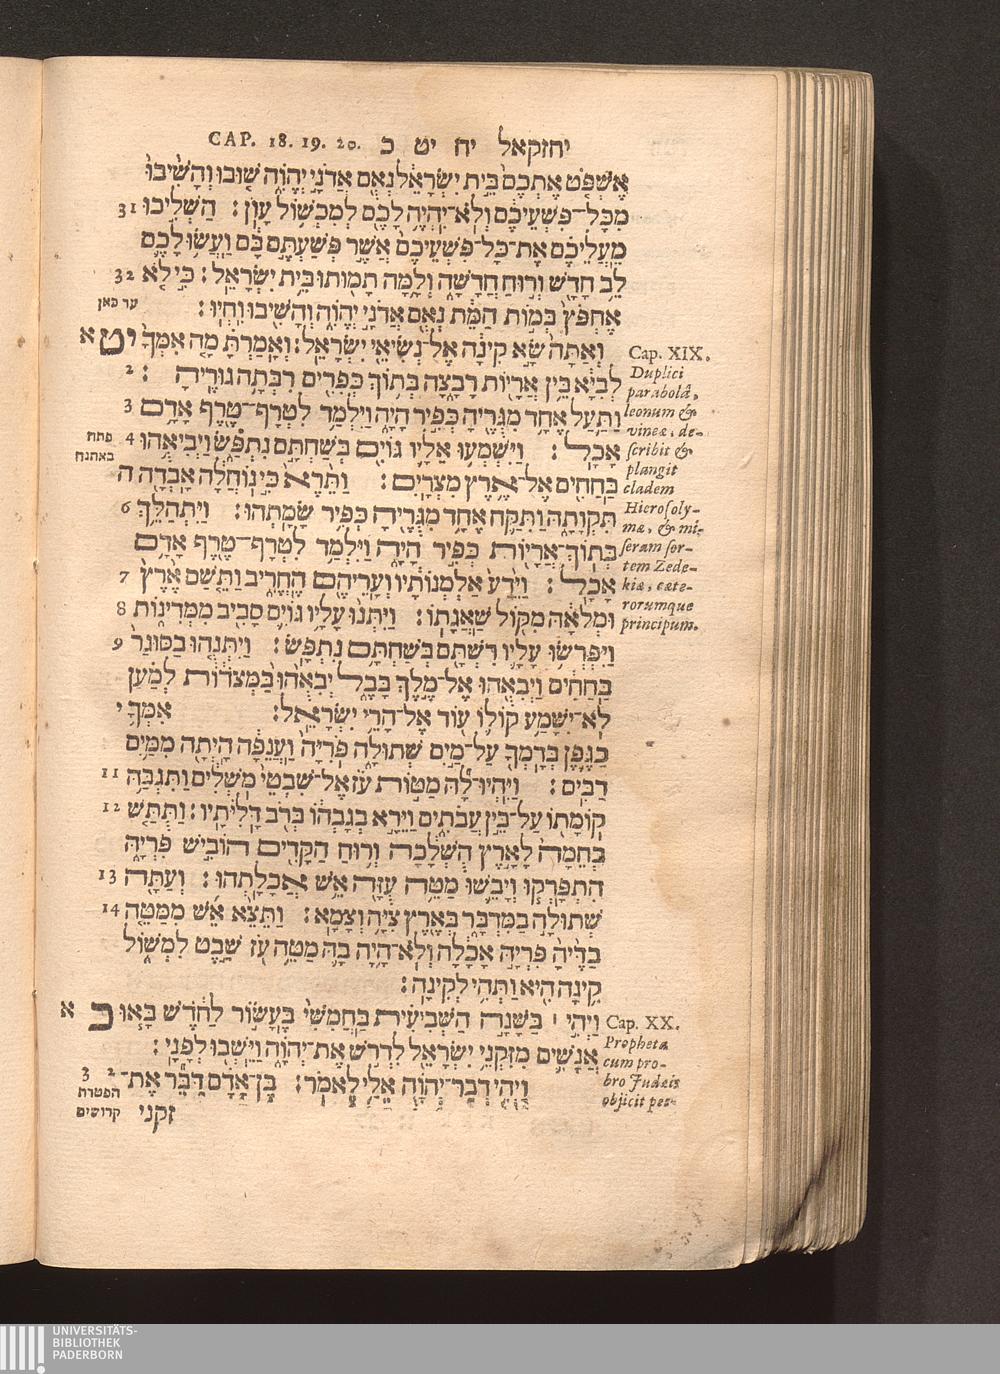 CAP. 18. 19. 20. יחזקאל יח יט כ
אֶשְׁפֹּט אֶתְכֶם בֵּית יִשְׂרָאֵל נְאֻם אֲדֹנָי יְהֹוִה שׁוּבוּ וְהָשִׁיבוּ
מִכָּל־פִּשְׁעֵיכֶם וְלֹא־יִהְיֶה לָכֶם לְמִכְשׁוֹל עָוֹן: הַשְׁלִיכוּ 31
מֵעֲלֵיכֶם אֶת־כָּל־פִּשְׁעֵיכֶם אֲשֶׁר פְּשַׁעְתֶּם בָּם וַעֲשׂוּ לָכֶם
לֵב חָדָשׁ וְרוּחַ חֲדָשָׁה וְלָמָּה תָמוּתוּ בֵּית יִשְׂרָאֵל: כִּי לֹא 32
אֶחְפֹּץ בְּמוֹת הַמֵּת נְאֻם אֲדֹנָי יְהֹוִה וְהָשִׁיבוּ וִחְיוּ: עד כאן
וְאַתָּה שָׂא קִינָה אֶל־נְשִׂיאֵי יִשְׂרָאֵל: וְאָמַרְתָּ מָה אִמְּךָ יט א
לְבִיָּא בֵּין אֲרָיוֹת רָבָצָה בְּתוֹךְ כְּפִרִים רִבְּתָה גוּרֶיהָ: 2
וַתַּעַל אֶחָד מִגֻּרֶיהָ כְּפִיר הָיָה וַיִּלְמַד לִטְרָף־טֶרֶף אָדָם 3
אָכָל: וַיִּשְׁמְעוּ אֵלָיו גּוֹיִם בְּשַׁחְתָּם נִתְפָּשׂ וַיְבִיאֻהוּ 4
פתח
באתנח
בַחַחִים אֶל־אֶרֶץ מִצְרָיִם: וַתֵּרֶא כִּי נוֹחֲלָה אָבְדָה ה
תִּקְוָתָהּ וַתִּקַּח אֶחָד מִגֻּרֶיהָ כְּפִיר שָׂמָתְהוּ: וַיִּתְהַלֵּךְ 6
בְּתוֹךְ־אֲרָיוֹת כְּפִיר הָיָה וַיִּלְמַד לִטְרָף־טֶרֶף אָדָם
אָכָל: וַיֵּדַע אַלְמְנוֹתָיו וְעָרֵיהֶם הֶחֱרִיב וַתֵּשַׁם אֶרֶץ 7
וּמְלֹאָהּ מִקּוֹל שַׁאֲגָתוֹ: וַיִּתְּנוּ עָלָיו גּוֹיִם סָבִיב מִמְּדִינוֹת 8
וַיִּפְרְשׂוּ עָלָיו רִשְׁתָּם בְּשַׁחְתָּם נִתְפָּשׂ: וַיִּתְּנֻהוּ בַסּוּגַר 9
בַּחַחִים וַיְבִאֻהוּ אֶל־מֶלֶךְ בָּבֶל יְבִאֻהוּ בַּמְּצֹדוֹת לְמַעַן
לֹא־יִשָּׁמַע קוֹלוֹ עוֹד אֶל־הָרֵי יִשְׂרָאֵל: אִמְּךָ י
כַגֶּפֶן בְּדָמְךָ עַל־מַיִם שְׁתוּלָה פֹּרִיָּה וַעֲנֵפָה הָיְתָה מִמַּיִם
רַבִּים: וַיִּהְיוּ־לָהּ מַטּוֹת עֹז אֶל־שִׁבְטֵי מֹשְׁלִים וַתִּגְבַּהּ 11
קוֹמָתוֹ עַל־בֵּין עֲבֹתִים וַיֵּרָא בְגָבְהוֹ בְּרֹב דָּלִיֹּתָיו: וַתֻּתַּשׁ 12
בְּחֵמָה לָאָרֶץ הֻשְׁלָכָה וְרוּחַ הַקָּדִים הוֹבִישׁ פִּרְיָהּ
הִתְפָּרְקוּ וְיָבֵשׁוּ מַטֵּה עֻזָּהּ אֵשׁ אֲכָלָתְהוּ: וְעַתָּה 13
שְׁתוּלָה בַמִּדְבָּר בְּאֶרֶץ צִיָּה וְצָמָא: וַתֵּצֵא אֵשׁ מִמַּטֵּה 14
בַדֶּיהָ פִּרְיָהּ אָכָלָה וְלֹא־הָיָה בָהּ מַטֵּה עֹז שֵׁבֶט לִמְשׁוֹל
קִינָה הִיא וַתְּהִי לְקִינָה:
וַיְהִי ׀ בַּשָּׁנָה הַשְּׁבִיעִית בַּחֲמִשִׁי בֶּעָשׂוֹר לַחֹדֶשׁ בָּאוּ כ א
אֲנָשִׁים מִזִּקְנֵי יִשְׂרָאֵל לִדְרֹשׁ אֶת־יְהוָֹה וַיֵּשְׁבוּ לְפָנָי:
וַיְהִי דְבַר־יְהוָֹה אֵלַי לֵאמֹר: בֶּן־אָדָם דַּבֵּר אֶת־ 2 3
הפטרת
קדושים
זקני
Cap. XIX.
Duplici
parabolâ,
leonum &
vineæ, de-
scribit &
plangit
cladem
Hierosoly-
mæ, & mi-
seram sor-
tem Zede-
kiæ, cæte-
rorumque
principum.
Cap. XX.
Propheta
cum pro-
bro Judæis
objicit pec-
UNIVERSITÄTS-
BIBLIOTHEK
PADERBORN